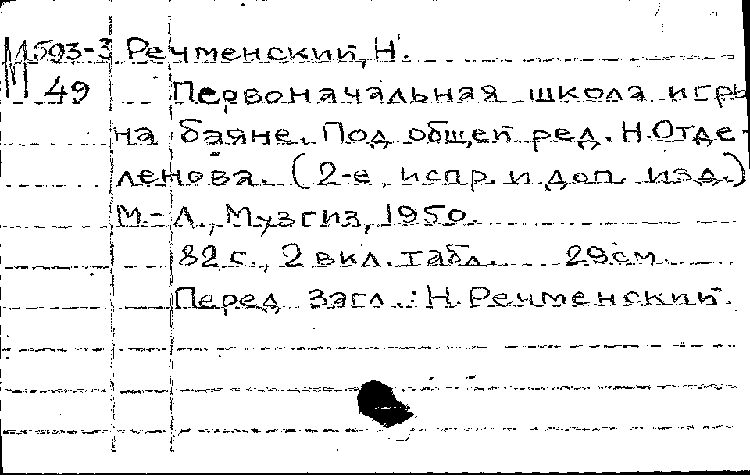 М 593-3 Речменский, Н.
49 Первоначальная школа игры
на баяне. Под общей ред. Н. Отде-
ленова. (2-е испр. и доп. изд.)
М.-Л., Музгиз, 1950.
82 с., 2 вкл. табл. 29 см.
Перед загл.: Н. Речменский.